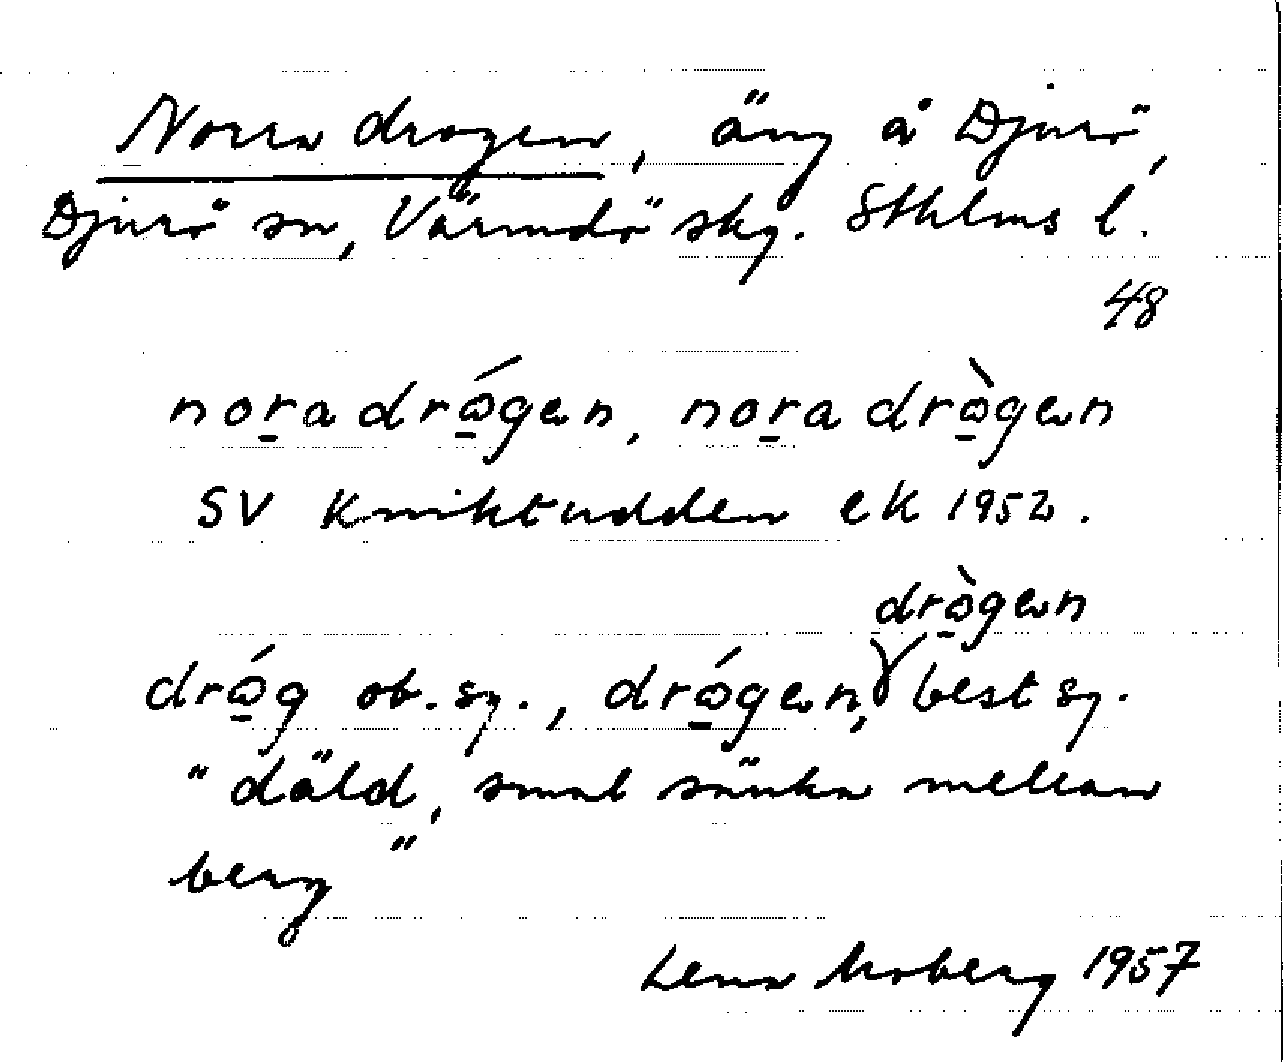 Norra drogen, äng å Djurö,
Djurö sn, Värmdö skg. Sthlms l.
48
nor̲a drώ̲gen, nor̲a drò̲gen
SV Kniktudden ek 1952.
drò̲gen
drώ̲g ob. sg., drώ̲gen, best sg.
"däld, smal sänka mellan
berg"
Lena Moberg 1957